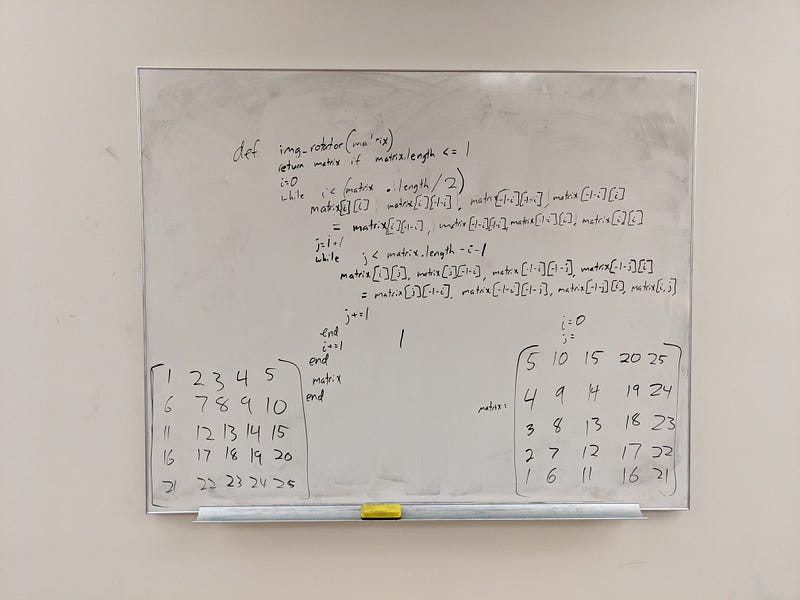 def img_rotator(matrix)
return matrix if matrix.length <= 1
i=0
while i < (matrix.length/2)
matrix[i][i], matrix[i][-1-i], matrix[-1-i][-1-i], matrix[-1-i][i]
= matrix[i][-1-i], matrix[-1-i][-1-i], matrix[-1-i][i], matrix[i][i]
j=i+1
while j < matrix.length -i-1
matrix[i][j], matrix[j][-1-i], matrix[-1-i][-1-j], matrix[-1-j][i]
= matrix[j][-1-i], matrix[-1-i][-1-j], matrix[-1-j][i], matrix[i,j]
j+=1
end
i+=1
end
matrix
end
1
1 2 3 4 5
6 7 8 9 10
11 12 13 14 15
16 17 18 19 20
21 22 23 24 25
i=0
j=
matrix=
5 10 15 20 25
4 9 14 19 24
3 8 13 18 23
2 7 12 17 22
1 6 11 16 21